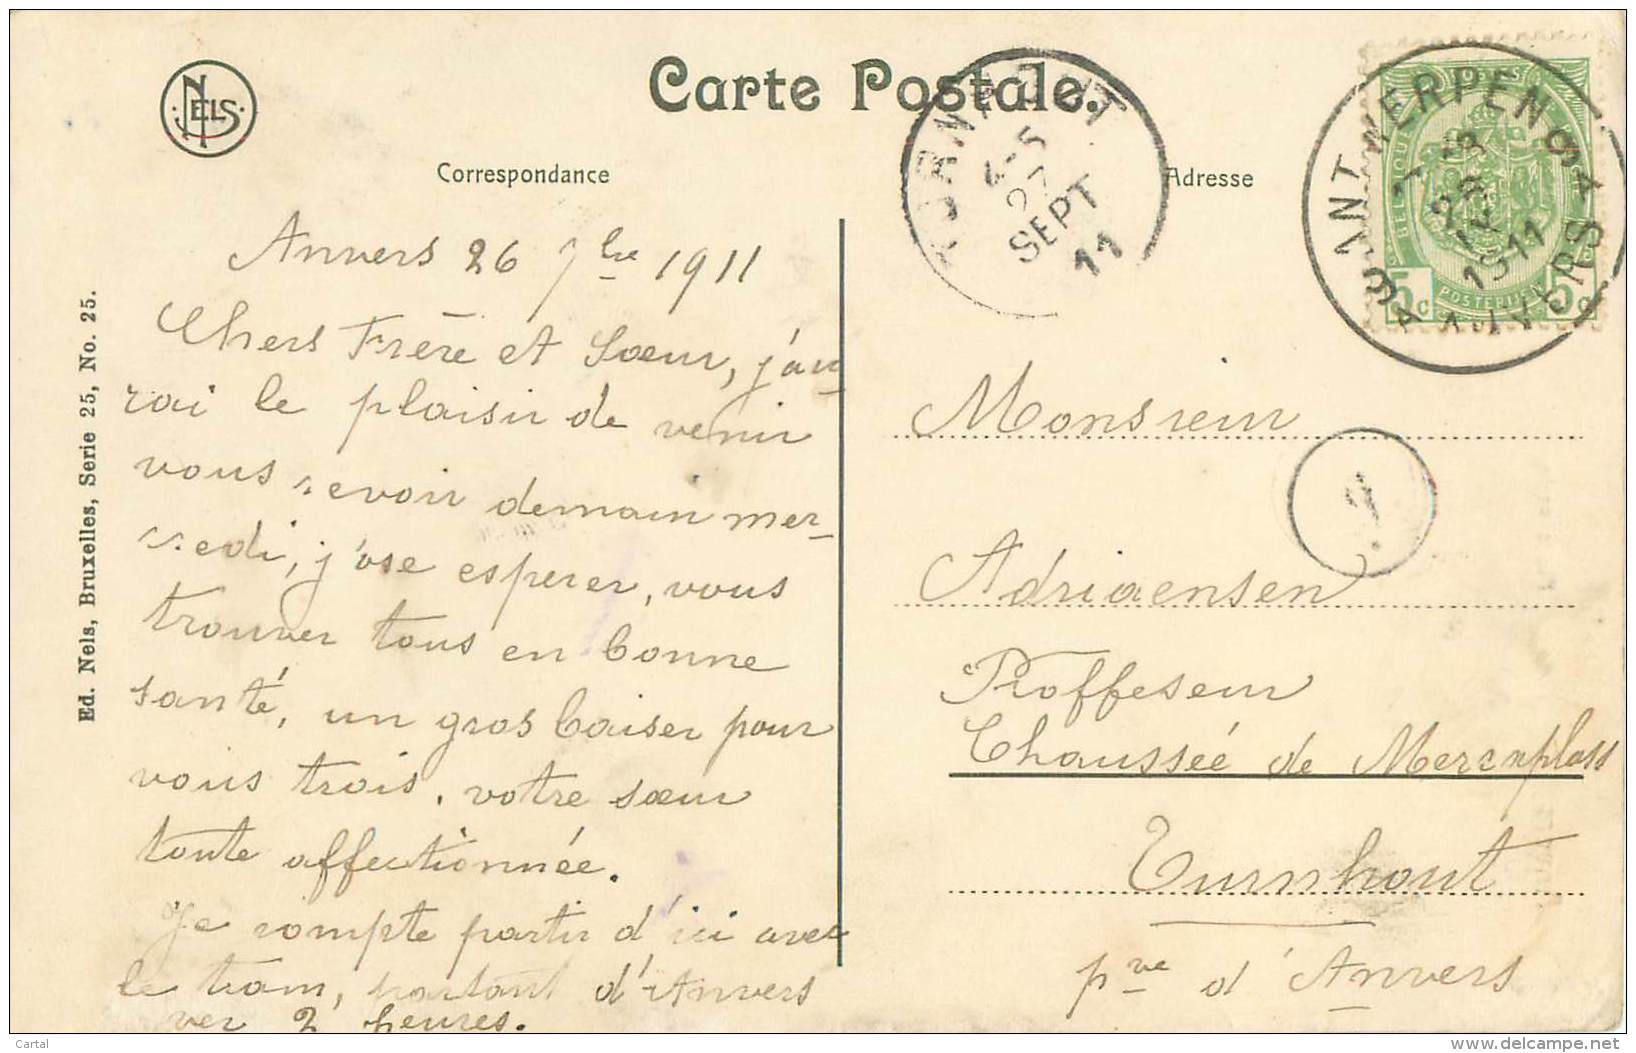 NELS
Carte Postale.
Correspondance
Adresse
Ed. Nels, Bruxelles, Serie 25, No. 25.
TURNHOUT
4-5
27
SEPT
11
ANTWERPEN
ANVERS
1911
BELGIQUE
POSTERIJEN
5c
5c
Anvers 26 7bre 1911
Chers Frère et Sœur, j'au
rai le plaisir de venir
vous revoir demain mer-
credi, j'ose esperer, vous
trouver tous en bonne
santé, un gros baiser pour
vous trois. votre sœur
toute affectionnée.
Je compte partir d'ici avec
le tram, partant d'Anvers
ver 2 heures.
Monsieur
Adriaensen
Proffeseur
Chaussée de Merxplass
Turnhout
pve d'Anvers
Cartal
www.delcampe.net